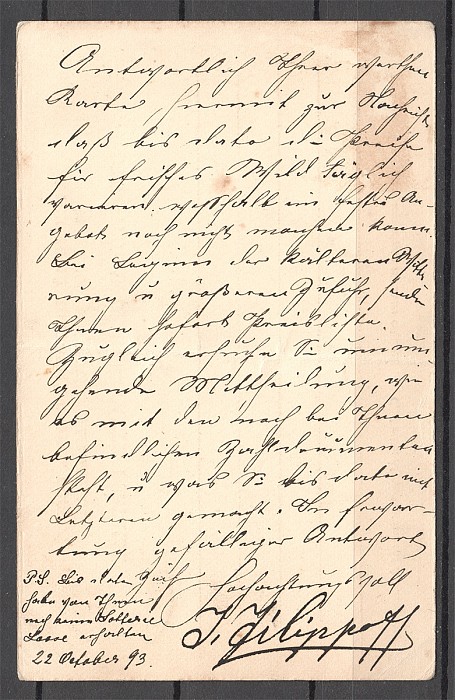 Antwortlich Ihrer werthen
Karte, hiermit zur Nachricht
daß bis dato die Preise
für frisches Wild täglich
variieren, weßhalb ein festes An-
gebot noch nicht machen kann.
Bei Beginn der kälteren Witte-
rung u größeren Zufuhr, sende
Ihnen sofort Preisliste.
Zugleich ersuche Sie um um-
gehende Mittheilung, wie
es mit den noch bei Ihnen
befindlichen
steht, u was Sie bis dato mit
Letzteren gemacht. In Erwar-
tung gefälliger Antwort
Hochachtungsvoll
J. Filippoff
P.S. Bis dato
habe von Ihnen
noch keine Lotterie
Loose erhalten
22 October 93.